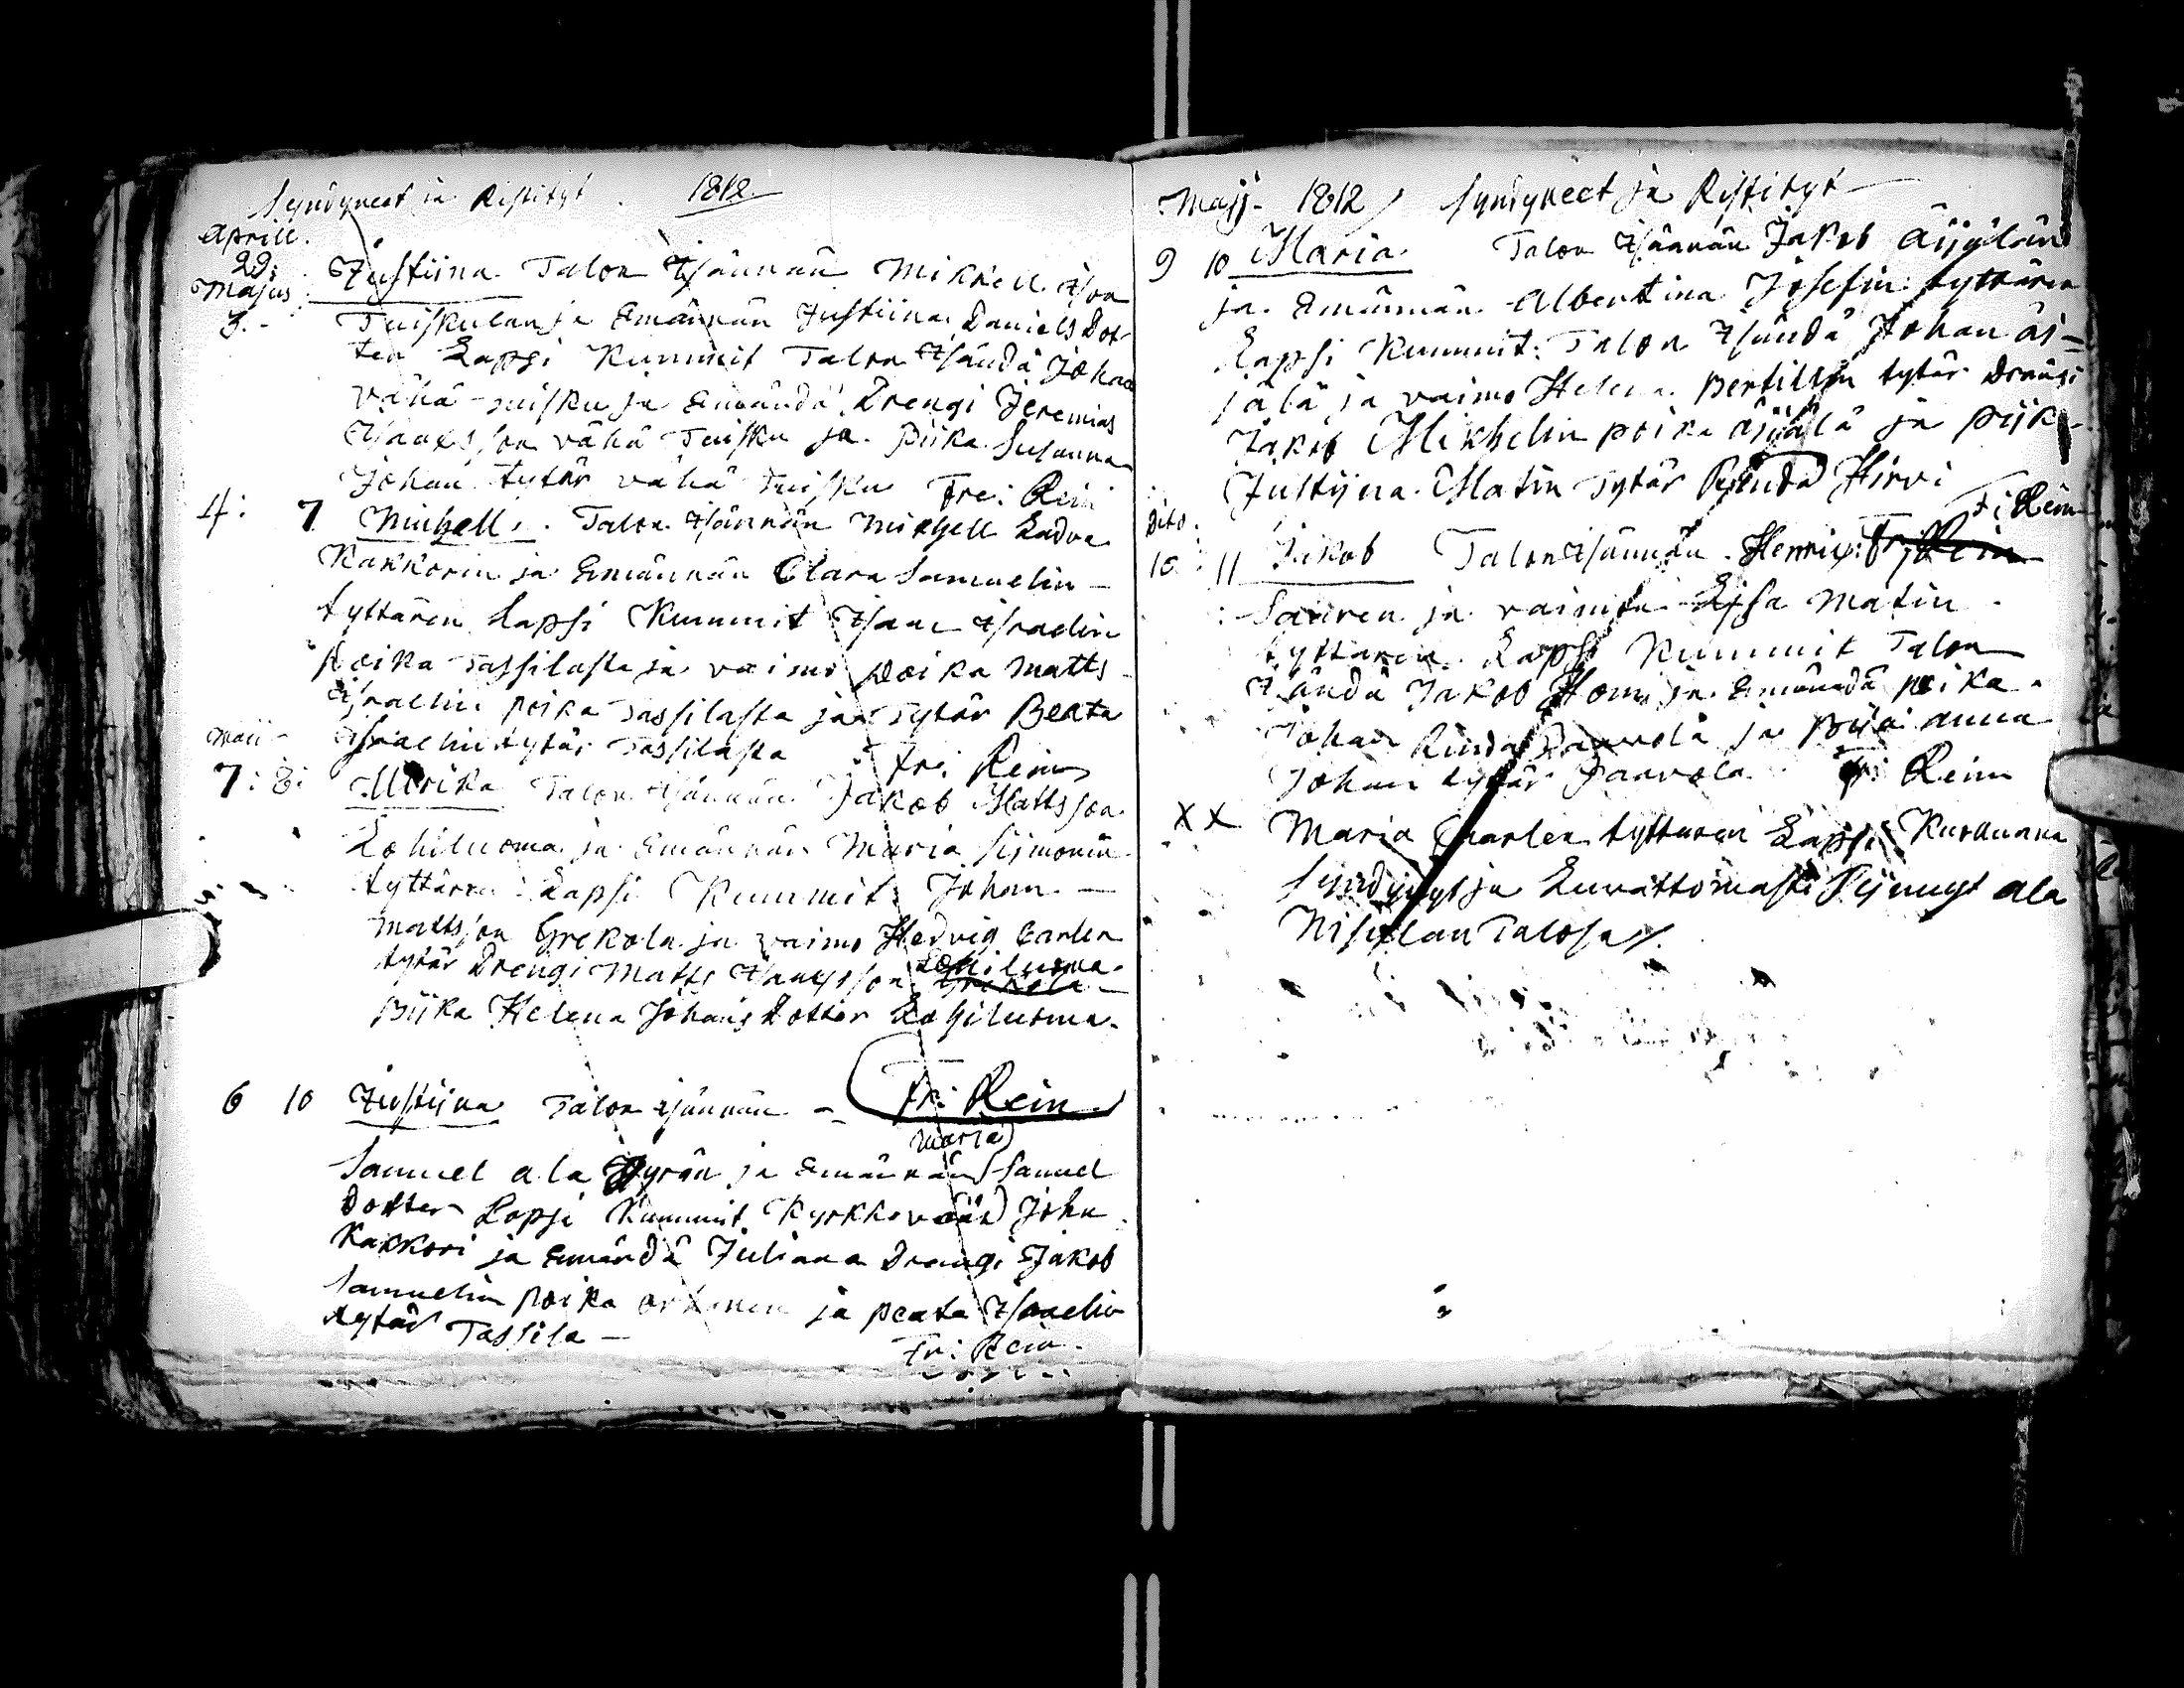 Syndyneet ja Ristityt. 1812
Aprill.
29: Justiina Talon Isännän Mikkell Ison
Majus
3.- Tuiskulan ja Emännän Justiina Daniels Dot-
ter Lapsi Kummit Talon Isändä Johan
vähä-tuisku ja Emändä Drengi Jeremias
Isaaksson vähä Tuisku ja Piika Susanna
Johan tytär vähä tuisku Fre: Rein
4: 7 Michell. Talon Isännän Michell Ladva
Kakkorin ja Emännän Clara Samuelin
tyttären Lapsi Kummit Isaac Israelin
Poika Tassilasta ja vaimo Poika Matts
Israelin poika Tassilasta ja tytär Beata
Israelin tytär Tassilasta Fr: Rein
Maii
7: 8: Ulrika Talon Isännän Jakob Mattsson
Lohiluoma ja Emännän Maria Sijmonin
tyttären Lapsi Kummit Johan
Mattsson Grekola ja vaimo Hedvig Carlen
tytär Drengi Matts Isaacsson Grekola Lohiluoma
Piika Helena Johans Dotter Lohiluoma.
Fr: Rein
6 10 Justijna Talon isännän
Maria
Samuel ala Jyrän ja Emännän Samuel
Dotter Lapsi Kummit Kyrkkovääd John
Kakkori ja Emändä Juliana Drengi Jakob
Samuelin poika ja peata Israelin
tytär Tassila
Fr: Rein.
Majj. 1812 Syndyneet ja Ristityt
9 10 Maria Talon Isännän Jakob Äijälän
ja Emännän Albertina Josefin tyttären
Lapsi Kummit: Talon Isändä Johan äi-
jälä ja vaimo Helena Bertillin tytär Drängi
Jakob Mikhelin poika Äijälä ja piik
Justijna Matin Tytär Hirvi
F: Rein
Dito
10: 11 Jakob Talon Isännän Henric Fr: Rein
Sauren ja vaimon Lisa Matin
tyttären Lapsi Kummit Talon
Isändä Jakob Homi ja Emändä poika
Johan Paavola ja Piia Anna
Johan tytär Paavola Fr: Rein
XX Maria Carlen tyttären Lapsi Kuolluana
Syndynyt ja Luvattomasti Sijnnyt ala
Nisulan Talosa